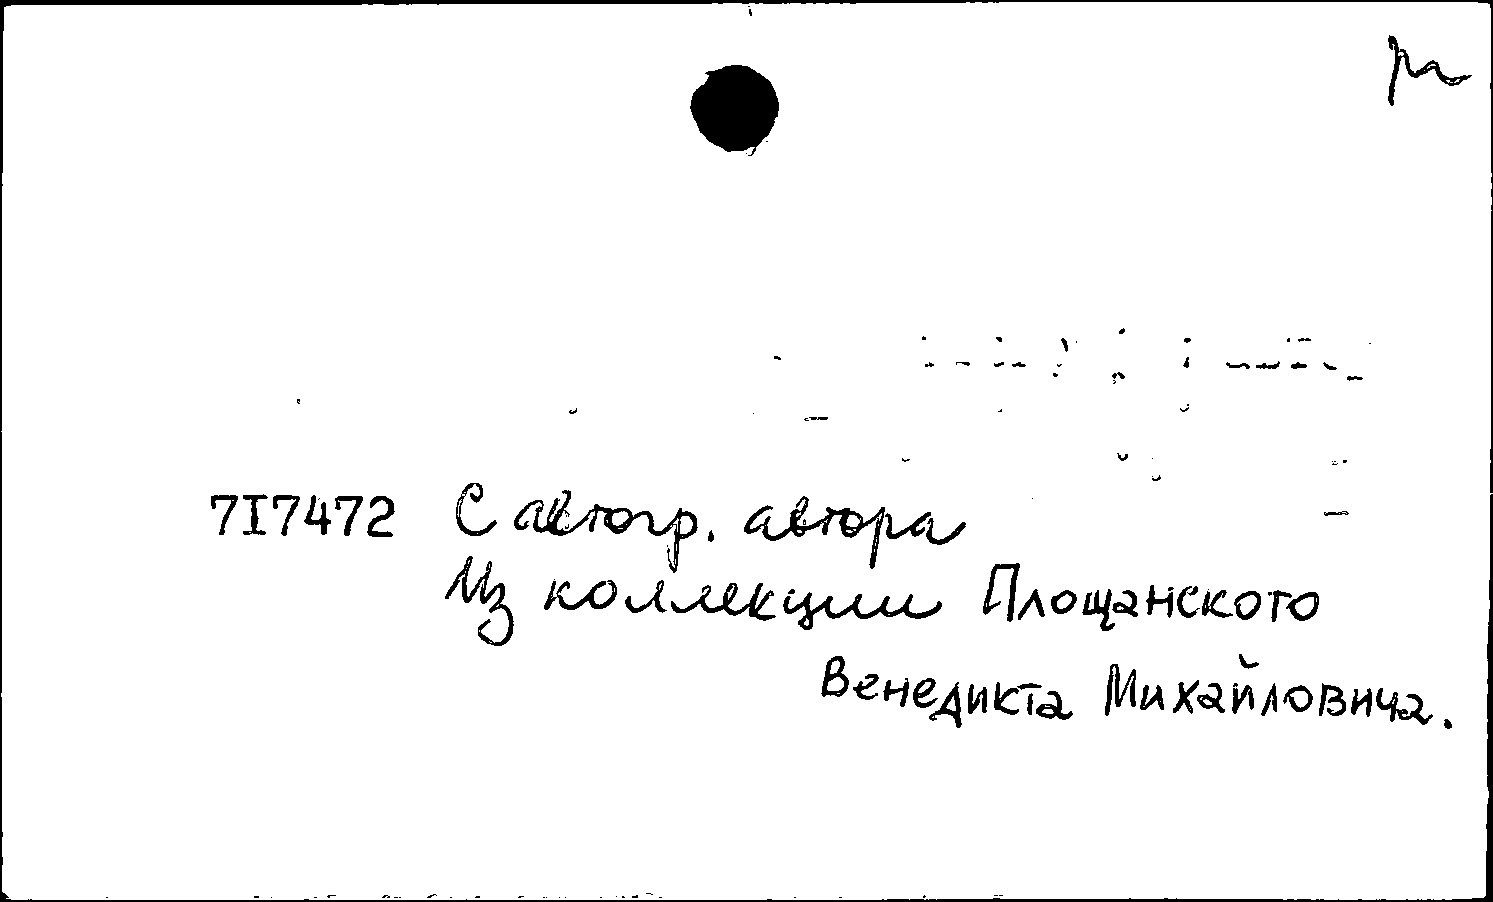 7I7472 С автогр. автора
Из коллекции Площанского
Венедикта Михайловича.